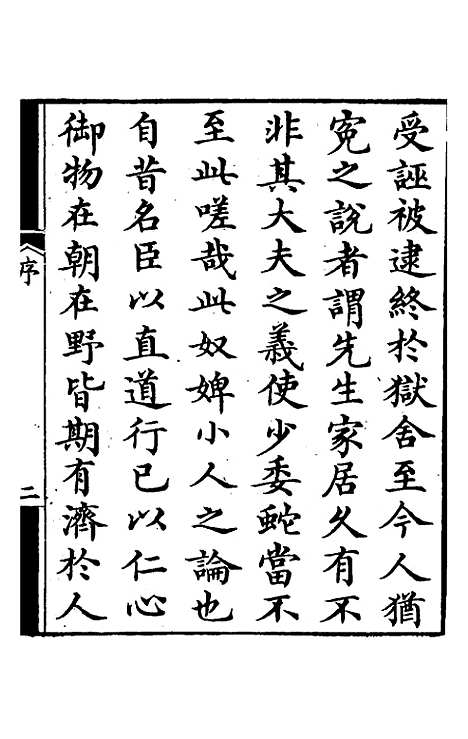 受誣被逮終於獄舍至今人猶
冤之說者謂先生家居久有不
非其大夫之義使少委蛇當不
至此嗟哉此奴婢小人之論也
自昔名臣以直道行已以仁心
御物在朝在野皆期有濟於人
序
二